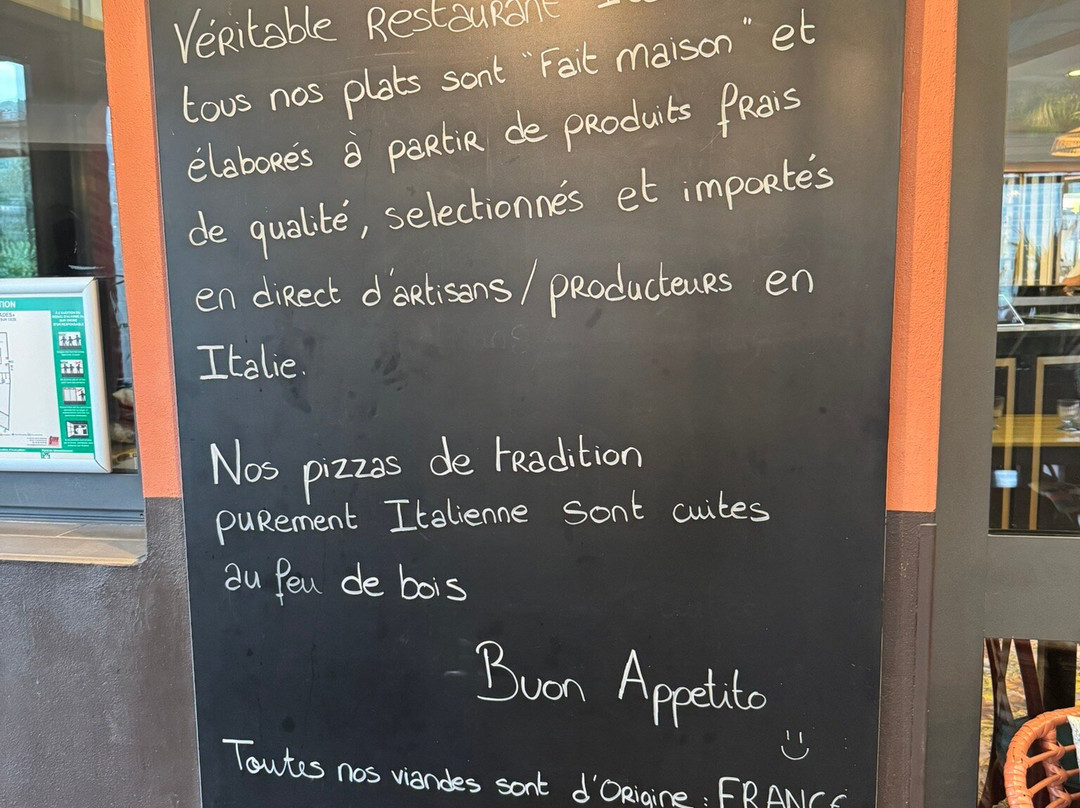 Véritable Restaurant
tous nos plats sont "Fait maison" et
élaborés à partir de produits frais
de qualité, selectionnés et importés
en direct d'artisans / producteurs en
Italie.
Nos pizzas de tradition
purement Italienne sont cuites
au feu de bois
Buon Appetito
Toutes nos viandes sont d'Origine : FRANCE